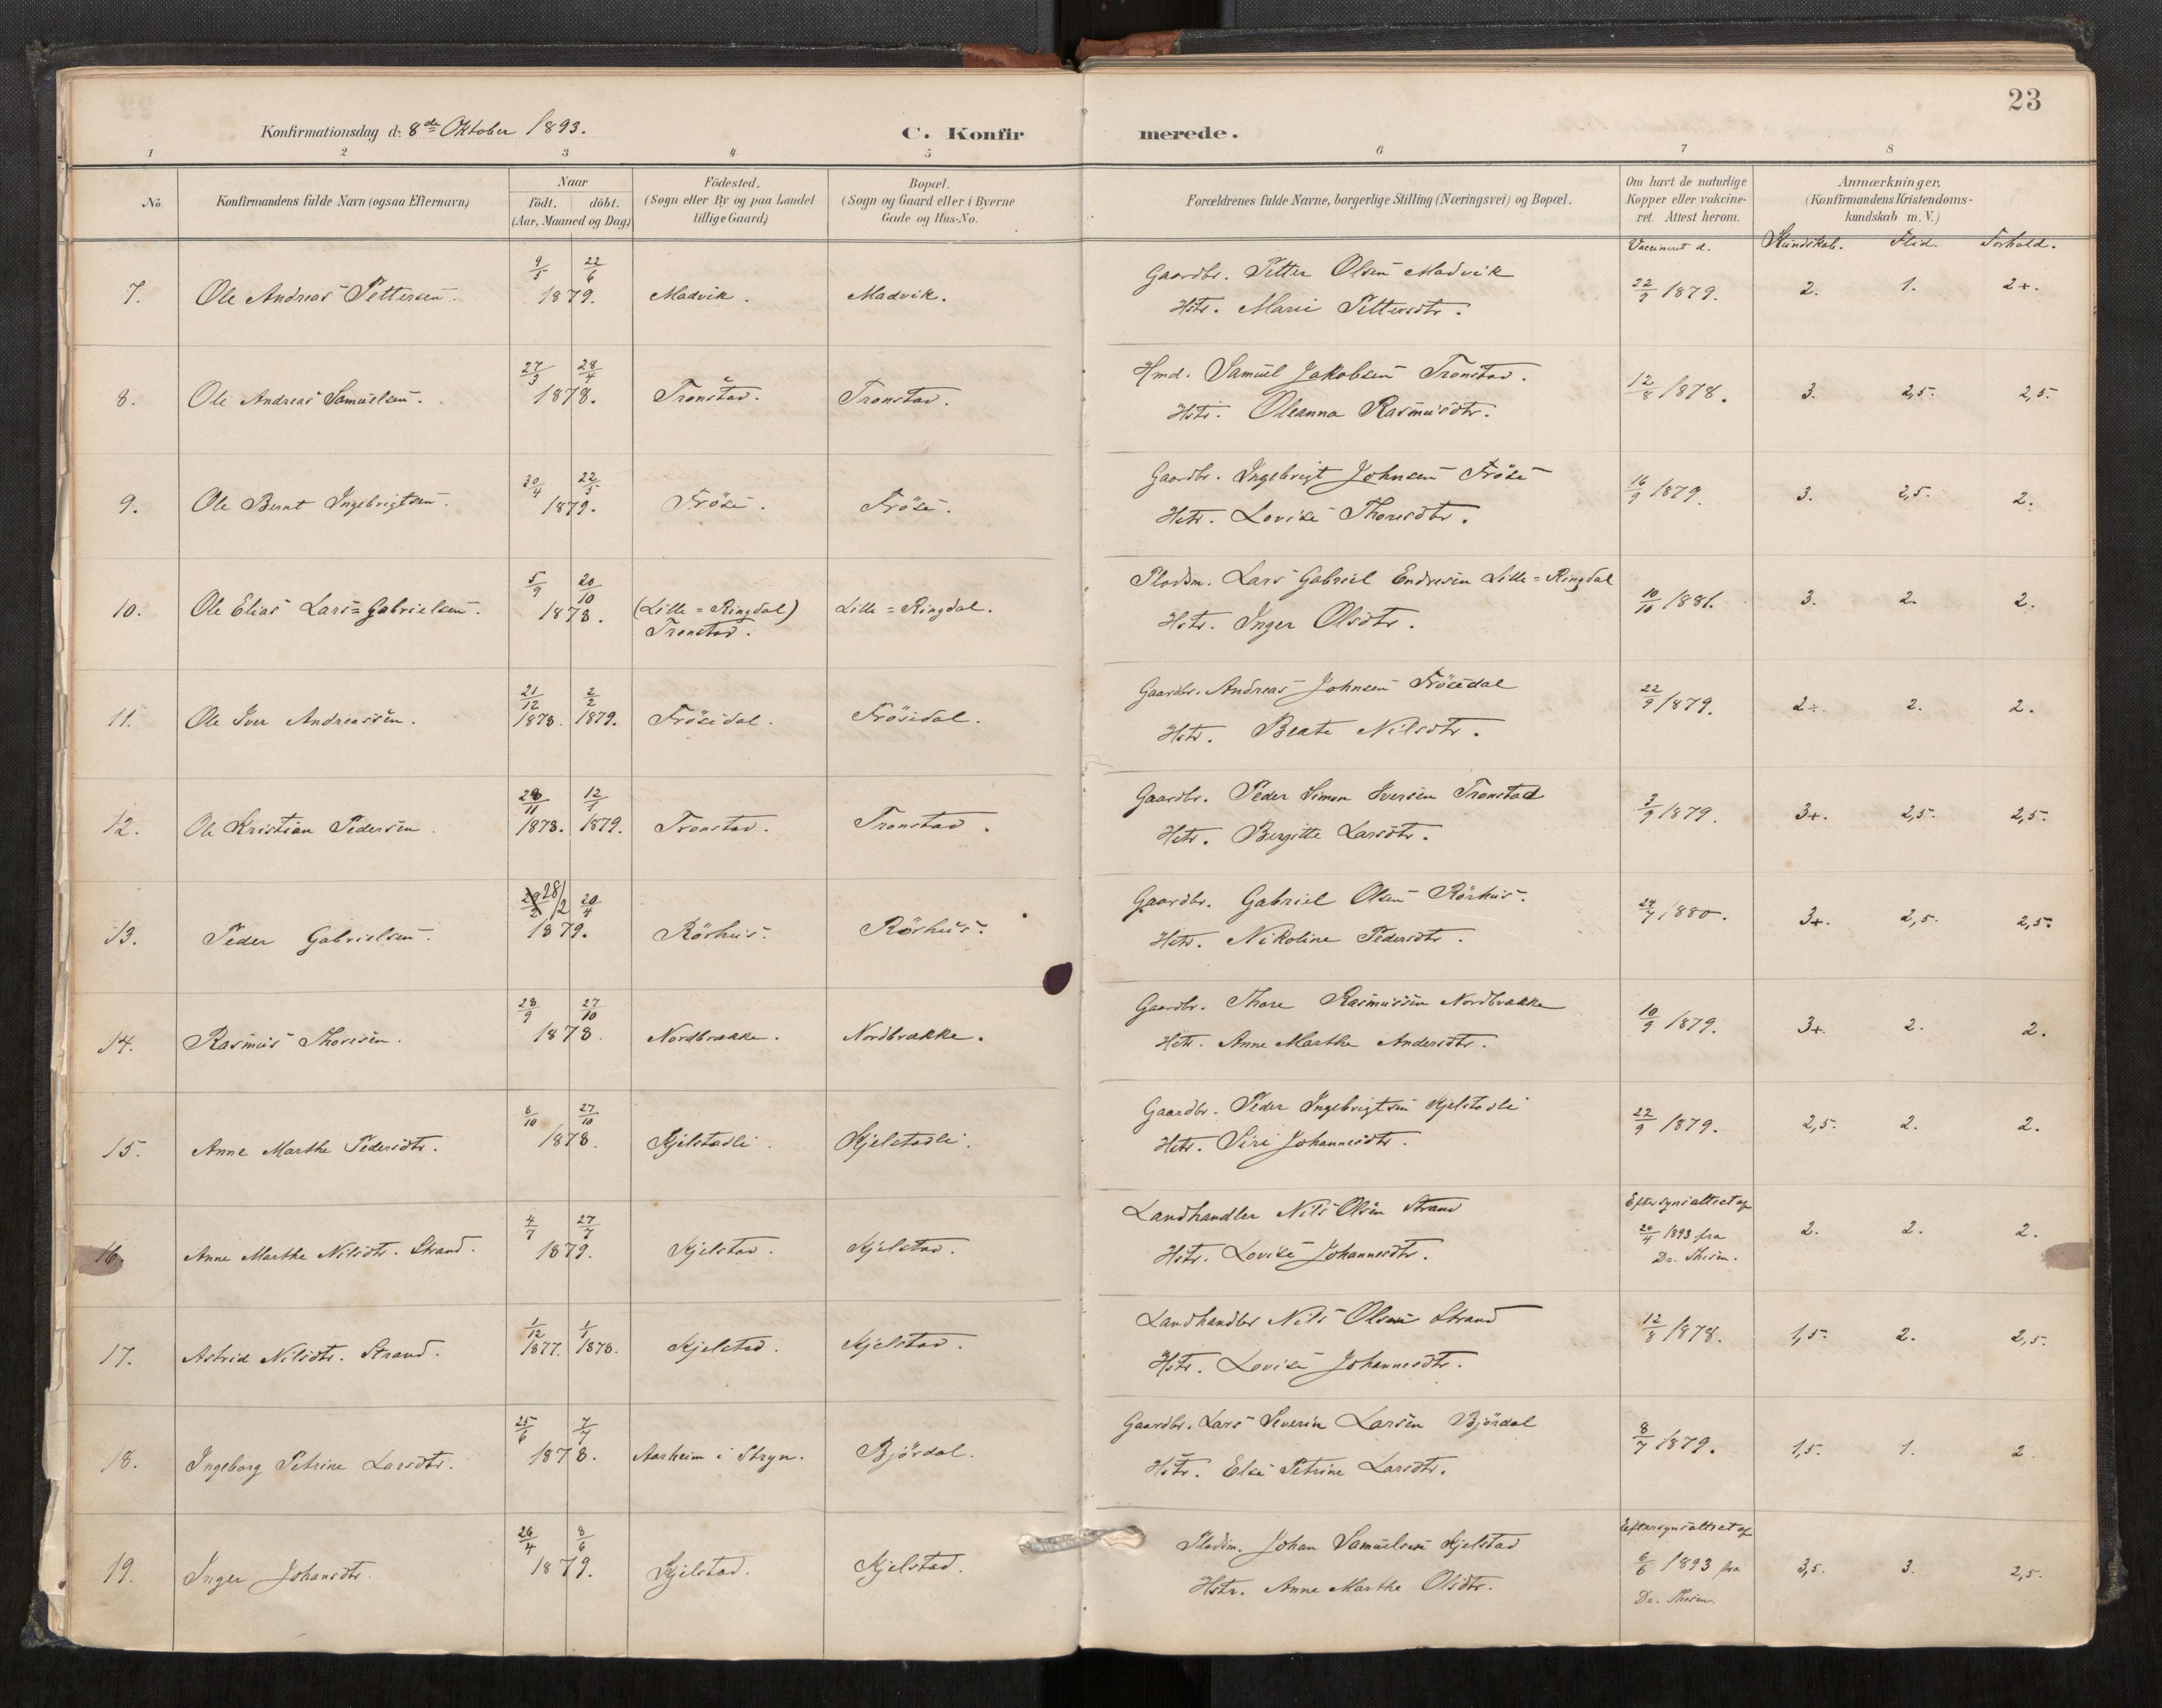 23
Konfirmationsdag d: 8de Oktober 1893.
C. Konfirmerede.
1 2 3 4 5 6 7 8
No. Konfirmandens fulde Navn (ogsaa Efternavn) Naar Födt. döbt. (Aar, Maaned og Dag) Födested. (Sogn eller By og paa Landet tillige Gaard) Bopæl. (Sogn og Gaard eller i Byerne Gade og Hus-No. Forældrenes fulde Navne, borgerlige Stilling (Næringsvei) og Bopæl. Om havt de naturlige Kopper eller vakcineret. Attest herom. Anmærkninger. (Konfirmandens Kristendomskundskab m. V.)
Vaccineret d. Kundskab. Flid. Forhold.
7. Ole Andreas Pettersen. 9/5 22/6 1879. Madvik. Madvik. Gaardbr. Petter Olsen Madvik 22/9 1879. 2. 1. 2+.
Hstr. Marie Pettersdtr.
8. Ole Andreas Samuelsen. 27/3 28/4 1878. Tronstad. Tronstad. Hmd. Samuel Jakobsen Tronstad. 12/8 1878. 3. 2,5. 2,5.
Hstr. Oleanna Rasmusdtr.
9. Ole Bernt Ingebrigtsen. 30/4 22/5 1879. Fröse. Fröse. Gaardbr. Ingebrigt Johnsen Fröse 16/9 1879. 3. 2,5. 2.
Hstr. Lovise Thoresdtr.
10. Ole Elias Lars=Gabrielsen. 5/9 20/10 1878. (Lille=Ringdal) Lille=Ringdal. Pladsm. Lars Gabriel Endresen Lille=Ringdal 10/10 1881. 3. 2. 2.
Tronstad. Hstr. Inger Olsdtr.
11. Ole Iver Andreassen. 21/12 1878. 2/2 1879. Frösedal. Frösedal. Gaardbr. Andreas Johnsen Frösedal 22/9 1879. 2÷. 2. 2.
Hstr. Beate Nilsdtr.
12. Ole Kristian Pedersen. 28/11 1878. 12/1 1879. Tronstad. Tronstad. Gaardbr. Peder Simon Iversen Tronstad 3/9 1879. 3+. 2,5. 2,5.
Hstr. Bergitte Larsdtr.
13. Peder Gabrielsen. 28/2 20/4 1879. Rörhus. Rörhus. Gaardbr. Gabriel Olsen Rörhus. 24/7 1880. 3+. 2,5. 2,5.
Hstr. Nikoline Pedersdtr.
14. Rasmus Thoresen. 28/9 27/10 1878. Nordbrække. Nordbrække. Gaardbr. Thore Rasmussen Nordbrække 10/9 1879. 3+. 2. 2.
Hstr. Anne Marthe Andersdtr.
15. Anne Marthe Pedersdtr. 8/10 27/10 1878. Kjelstadli. Kjelstadli. Gaardbr. Peder Ingebrigtsen Kjelstadli 22/9 1879. 2,5. 2. 2.
Hstr. Siri Johannesdtr.
16. Anne Marthe Nilsdtr. Strand. 4/7 27/7 1879. Kjelstad. Kjelstad. Landhandler Nils Olsen Strand Eftersynsattest af 24/4 1893 fra Dr. Thesen. 2. 2. 2.
Hstr. Lovise Johannesdtr.
17. Astrid Nilsdtr. Strand. 1/12 1877. 1/1 1878. Kjelstad. Kjelstad. Landhandler Nils Olsen Strand 12/8 1878. 1,5. 2. 2,5.
Hstr. Lovise Johannesdtr.
18. Ingeborg Petrine Larsdtr. 25/6 7/7 1878. Aarheim i Stryn. Björdal. Gaardbr. Lars Severin Larsen Björdal 8/7 1879. 1,5. 1. 2.
Hstr. Else Petrine Larsdtr.
19. Inger Johansdtr. 26/4 8/6 1879. Kjelstad. Kjelstad. Pladsm. Johan Samuelsen Kjelstad Eftersynsattest af 6/6 1893 fra Dr. Thesen. 3,5. 3. 2,5.
Hstr. Anne Marthe Olsdtr.